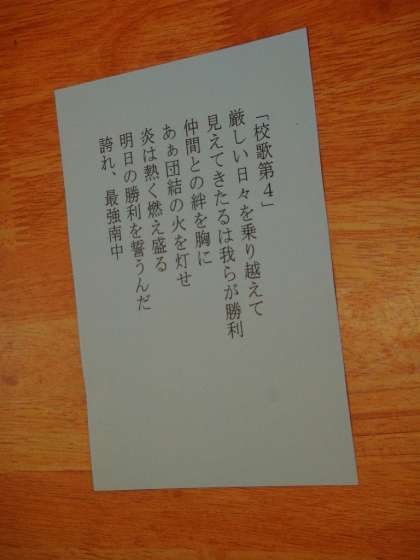 「校歌第４」
厳しい日々を乗り越えて
見えてきたるは我らが勝利
仲間との絆を胸に
あぁ団結の火を灯せ
炎は熱く燃え盛る
明日の勝利を誓うんだ
誇れ、最強南中